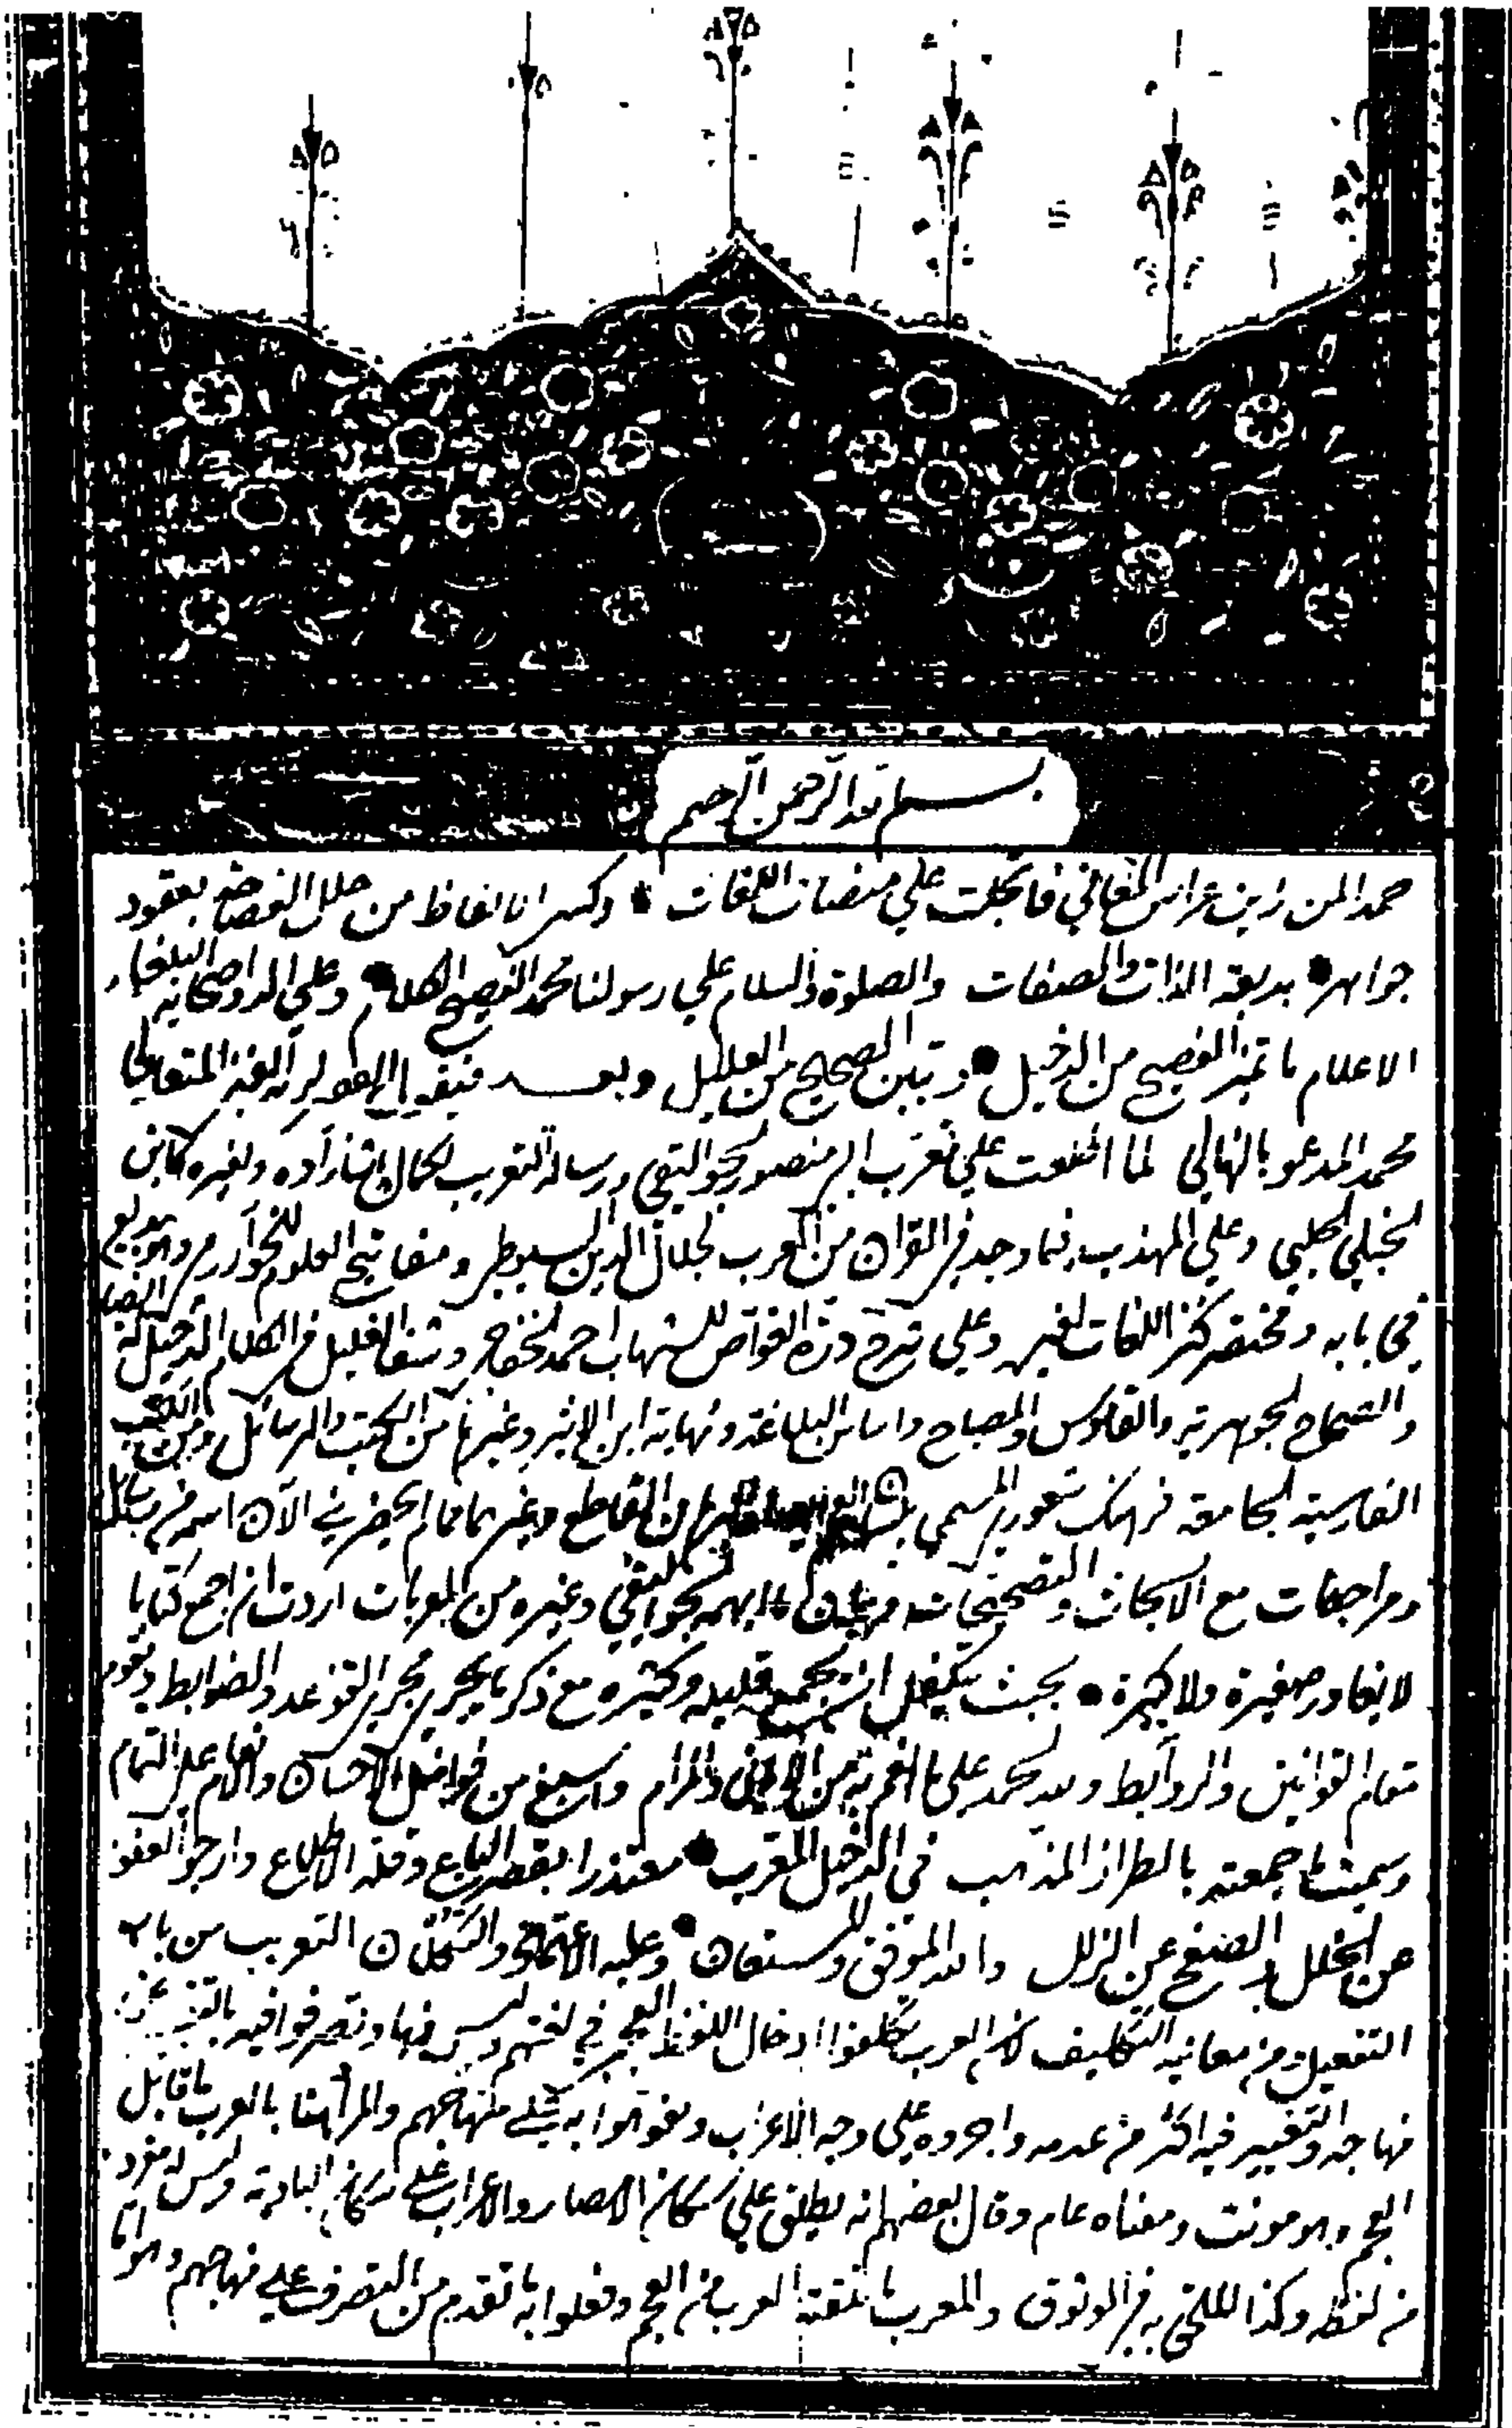 بسم الله الرحمن الرحيم
حمدا لمن زين عرائس المعاني فانجلت علي منصات اللغات وكسى الالفاظ من حلل الفصاحة بعقود
جواهر بديعة الذات والصفات والصلوة والسلام علي رسولنا محمد الفصيح الكلام وعلي اله واصحابه البلغاء
الاعلام ما تميز الفصيح من الدخيل وتبين الصحيح من العليل وبعد فيقول الفقير لربه الغني المتعالي
محمد المدعو بالنهالي لما اطلعت علي معرب ابي منصور الجواليقي ورسالة التعريب لكمال باشا زاده ولغيره كابن
الحنبلي الحلبي وعلي المهذب فيما وجد في القران من المعرب لجلال الدين السيوطي ومفاتيح العلوم للخوارزمي وهو بديع
في بابه ومختصر كنز اللغات لغيره وعلي شرح درة الغواص للشهاب احمد الخفاجي وشفا الغليل في الكلام الدخيل له
والصحاح الجوهرية والقاموس والمصباح واساس البلاغة ونهاية ابن الاثير وغيرها من الكتب والرسائل ومن الكتب
الفارسية الجامعة فرهنك شعوري المسمي بلسان العجم والبرهان القاطع وغيرهما مما لم يحضرني الآن اسمه في رسائل
ومراجعات مع الابحاث والتصحيحات الجواليقي وغيره من المعربات اردت ان اجمع كتابا
لا يغادر صغيرة ولا كبيرة بحيث يتكفل ان يجمع قليله وكثيره مع ذكر ما يجري مجري القواعد والضوابط ويقوم
مقام القوانين والروابط ولله الحمد علي ما انعم به من الاماني والمرام واسبغ من فواضل الاحسان والانعام علي التمام
وسميت ما جمعته بالطراز المذهب في الدخيل المعرب معتذرا بقصر الباع وقلة الاطلاع وارجو العفو
عن الخلل والصفح عن الزلل والله الموفق والمستعان وعليه الاعتماد والتكلان التعريب من باب
التفعيل ومن معانيه التكليف كان العرب تكلفوا ادخال اللفظ العجمي في لغتهم وليس فيها وتصرفوا فيه بالتغيير عن
منهاجه والتغيير فيه اكثر من عدمه واجروه علي وجه الاعراب وتفوهوا به علي منهاجهم والمراد هنا بالعرب ما قابل
العجم وهو مونث ومعناه عام وقال بعضهم انه يطلق علي سكان الامصار والاعراب علي سكان البادية وليس له مفرد
من لفظه وكذا الملحق به في الموثوق والمعرب ما تلقته العرب من العجم وفعلوا به ما تقدم من التصرف علي منهاجهم وهو اما